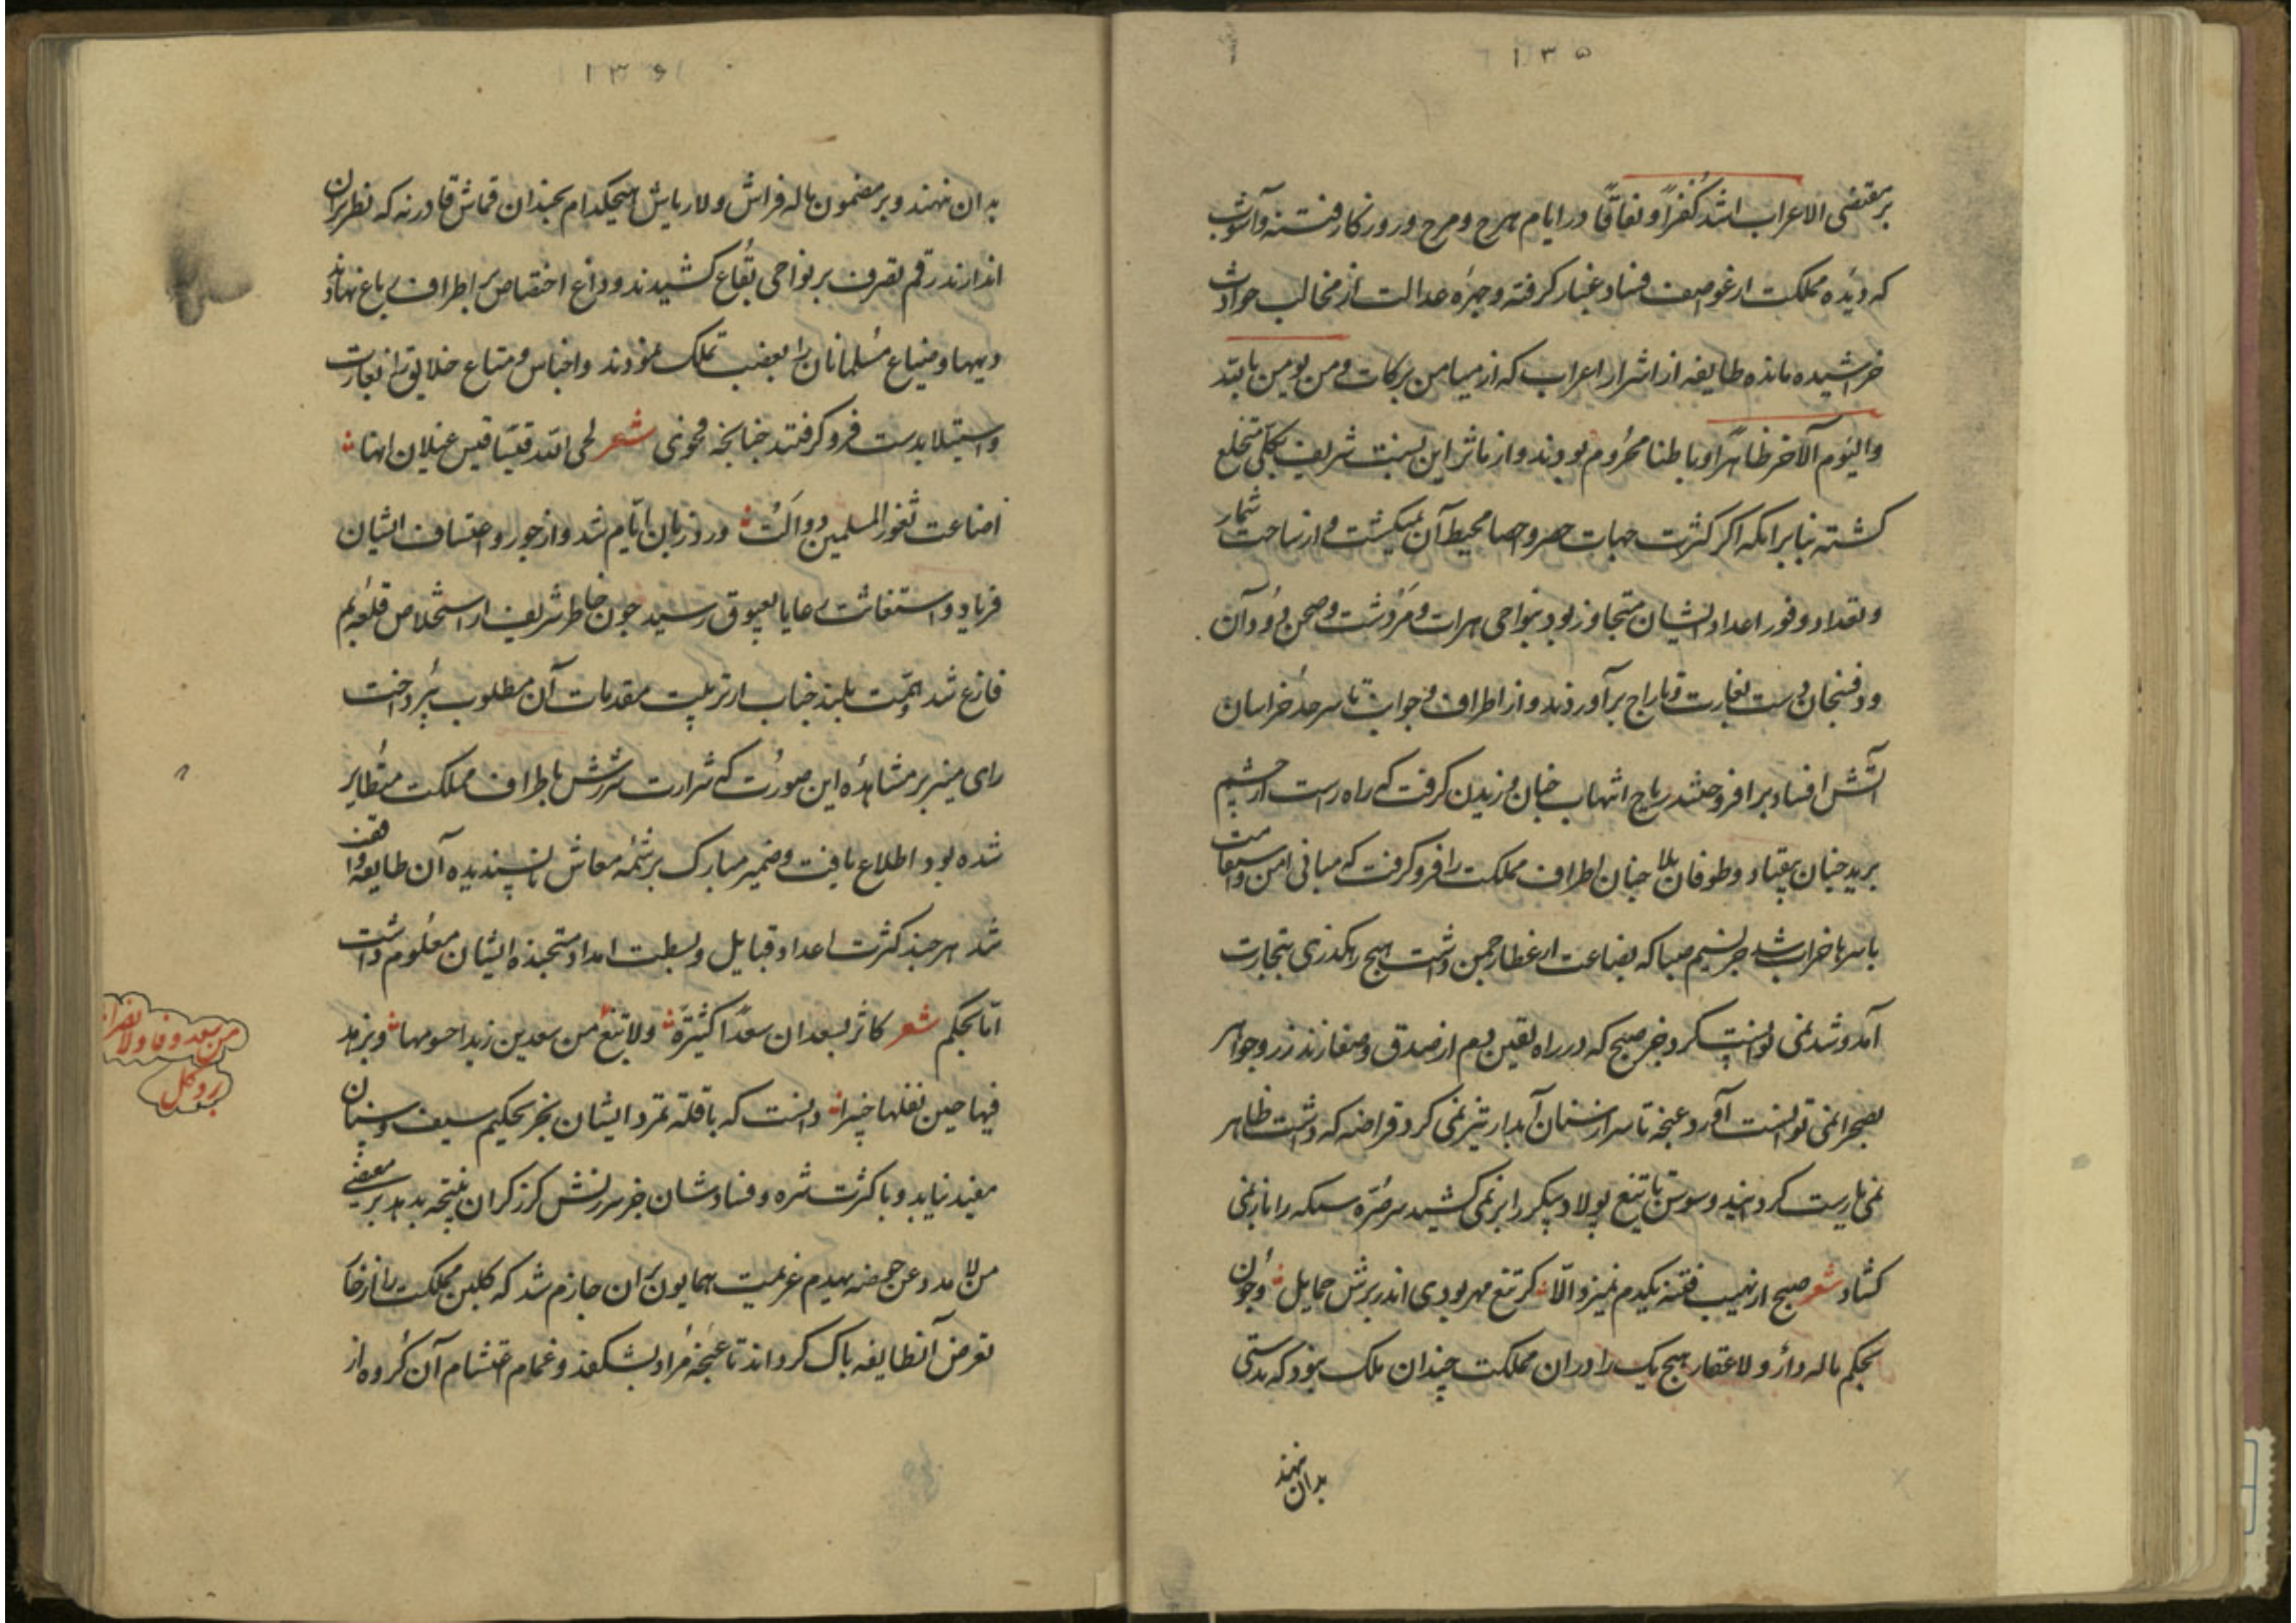 ۱۳۵
بر مقتضی الاعراب اشد کُفراً و نفاقاً در ایام هرج و مرج و روزکار فتنه و آشوب
که دیده مملکت از غواصف فساد غبار کرفته و چهره عدالت از مخالب حوادث
خراشیده مانده طایفه از اشرار اعراب که از میامن برکات و من یومن بالله
والیَوم الآخر ظاهراً و باطنا محرُوم بودند و از مآثر این نسبت شریف بکلی منخلع
کشته بنابر آنکه اکر کثرت جهات حصر و احصا محیط آن نمیکشت و از ساحت شمار
و تعداد وفور اعداد ایشان متجاوز بود بنواحی هرات و مَروشت و صحن رُودان
و رفسنجان دست بغارت و تاراج برآوردند و از اطراف و جوانب تا سرحد خراسان
آتش افساد برافروختند ریاح انتهاب چنان وزیدن کرفت که راه راست از چشم
برید چنان بیفتاد و طوفان بلا چنان اطراف مملکت را فرو کرفت که مبانی امن و استقامت
باسرها خراب شد جز نسیم صبا که بضاعت از عطار چمن داشت هیچ رهکذری بتجارت
آمد و شد نمی توانست کرد و جز صبح که در راه یقین دم از صدق و صفا زند زر و جواهر
بصحرا نمی توانست آورد غنچه تا سر از سنان آبدار تیز نمی کرد قراضه که داشت ظاهر
نمی یارست کردانید و سوسن تا تیغ پولاد پیکر را بر نمی کشید سر صُرّه سیکه را باز نمی
کشاد شعر صبح از نهیب فتنه یکدم نمیزد الّا کر تیغ مهر بودی اندر برش حمایل و چون
بحکم ماله دار و لا عقار هیچ یک را در ان مملکت چندان ملک نبود که بدستی
بدان نهند
۱۳۶
بدان نهند و بر مضمون ماله فراش و لا ریاش هیچکدام بچندان قماش قادر نه که نظر بران
اندازند رقم تصرف بر نواحی بقاع کشیدند و داغ اختصاص بر اطراف رباع نهادند
دیهها و ضیاع مسُلمانان را بغصب تملک نمودند و اجناس و متاع خلایق را بغارت
و استیلا بدست فرو کرفتند چنانچه فحوی شعر لحی الله قیسا قیس عیلان انها
اضاعت ثغور المسلمین و ولّت ورد زبان ایّام شد و از جور و اعتساف ایشان
فریاد و استغاثت رعایا بعیوق رسید چون خاطر شریف از استخلاص قلعه بم
فارغ شد و همّت بلند جناب از ترتیب مقدمات آن مطلوب بپرداخت
رای منیر بر مشاهدُه این صورُت که شرارت شررش باطراف مملکت متطایر
شده بود اطلاع یافت و ضمیر مبارک بر شمّه معاش ناپسندیده آن طایفه واقف
شد هر چند کثرت اعداد قبایل و بسطت امداد مستجنده ایشان معلُوم داشت
امّا بحکم شعر کاثر بسعد ان سعداً کثیرَة و لا تبغ من سعد بن زید احسومها و یزهد
فیها حین تقلها خبرا دانست که ماده تمرد ایشان بجز بحکیم سیف و سنان
مفید نیاید و با کثرت شره و فسادشان جز سرزنش کرز کران نتیجه بدهد بر مقتضی
من لا یذد عن حوضه یهدم عزیمت همایون بران جازم شد که کلبن مملکت را از خار
تعرض آنطایفه پاک کرداند تا غنچه مُراد بشکفد و غمام اغتشام آن کُروه از
من سعد وفا ولا نصرا